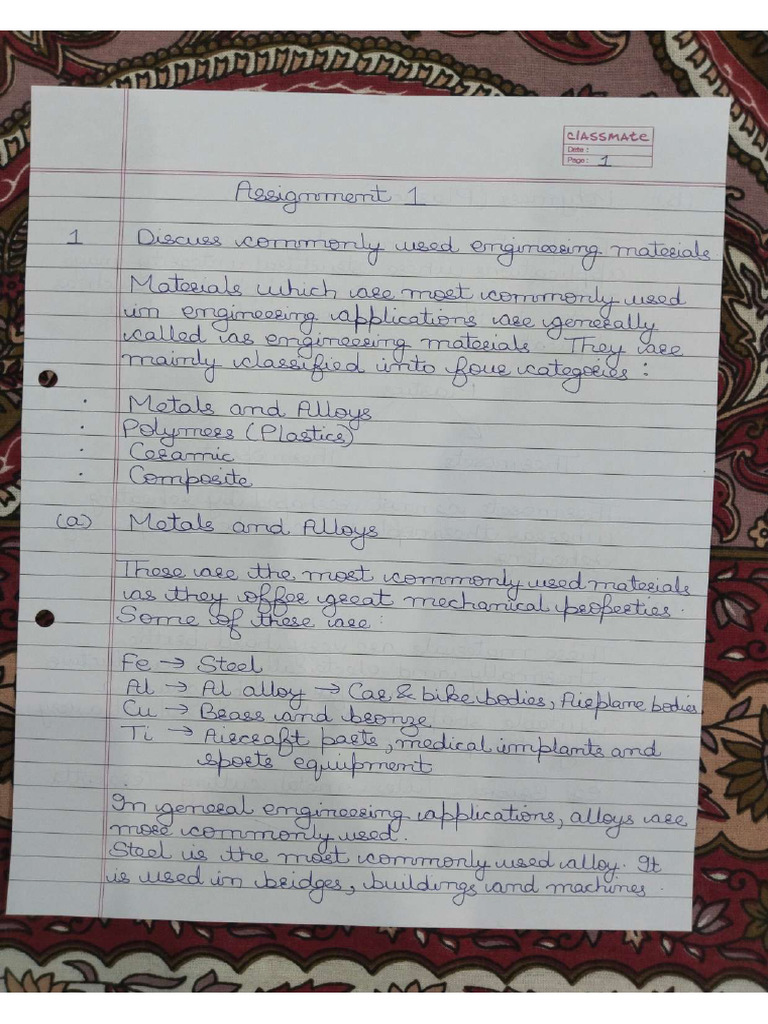 CLASSMATE
Date :
Page : 1
Assignment 1
1 Discuss commonly used engineering materials.
Materials which are most commonly used
in engineering applications are generally
called as engineering materials. They are
mainly classified into four categories :
· Metals and Alloys
· Polymers (Plastics)
· Ceramic
· Composite
(a) Metals and Alloys
These are the most commonly used materials
as they offer great mechanical properties.
Some of these are:
Fe → Steel
Al → Al alloy → Car & bike bodies, Airplane bodies
Cu → Brass and bronze
Ti → Aircraft parts, medical implants and
sports equipment
In general engineering applications, alloys are
more commonly used.
Steel is the most commonly used alloy. It
is used in bridges, buildings and machines.